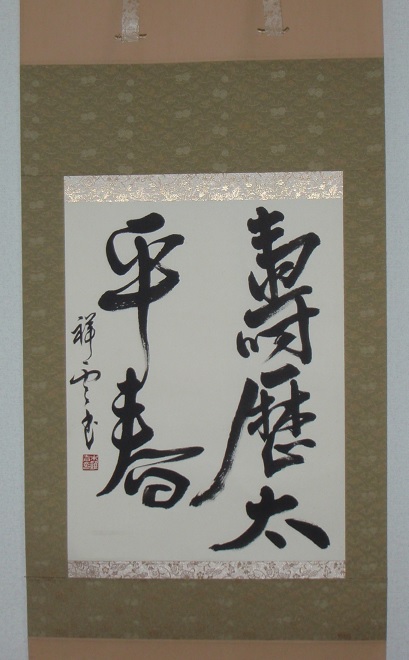 壽歴太
平春
祥雲書